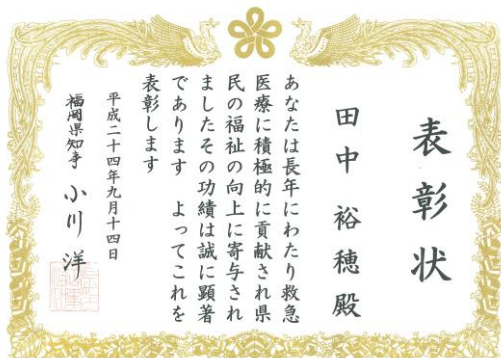 表彰状
田中裕穂殿
あなたは長年にわたり救急
医療に積極的に貢献され県
民の福祉の向上に寄与され
ましたその功績は誠に顕著
であります　よってこれを
表彰します
平成二十四年九月十四日
福岡県知事 小川洋